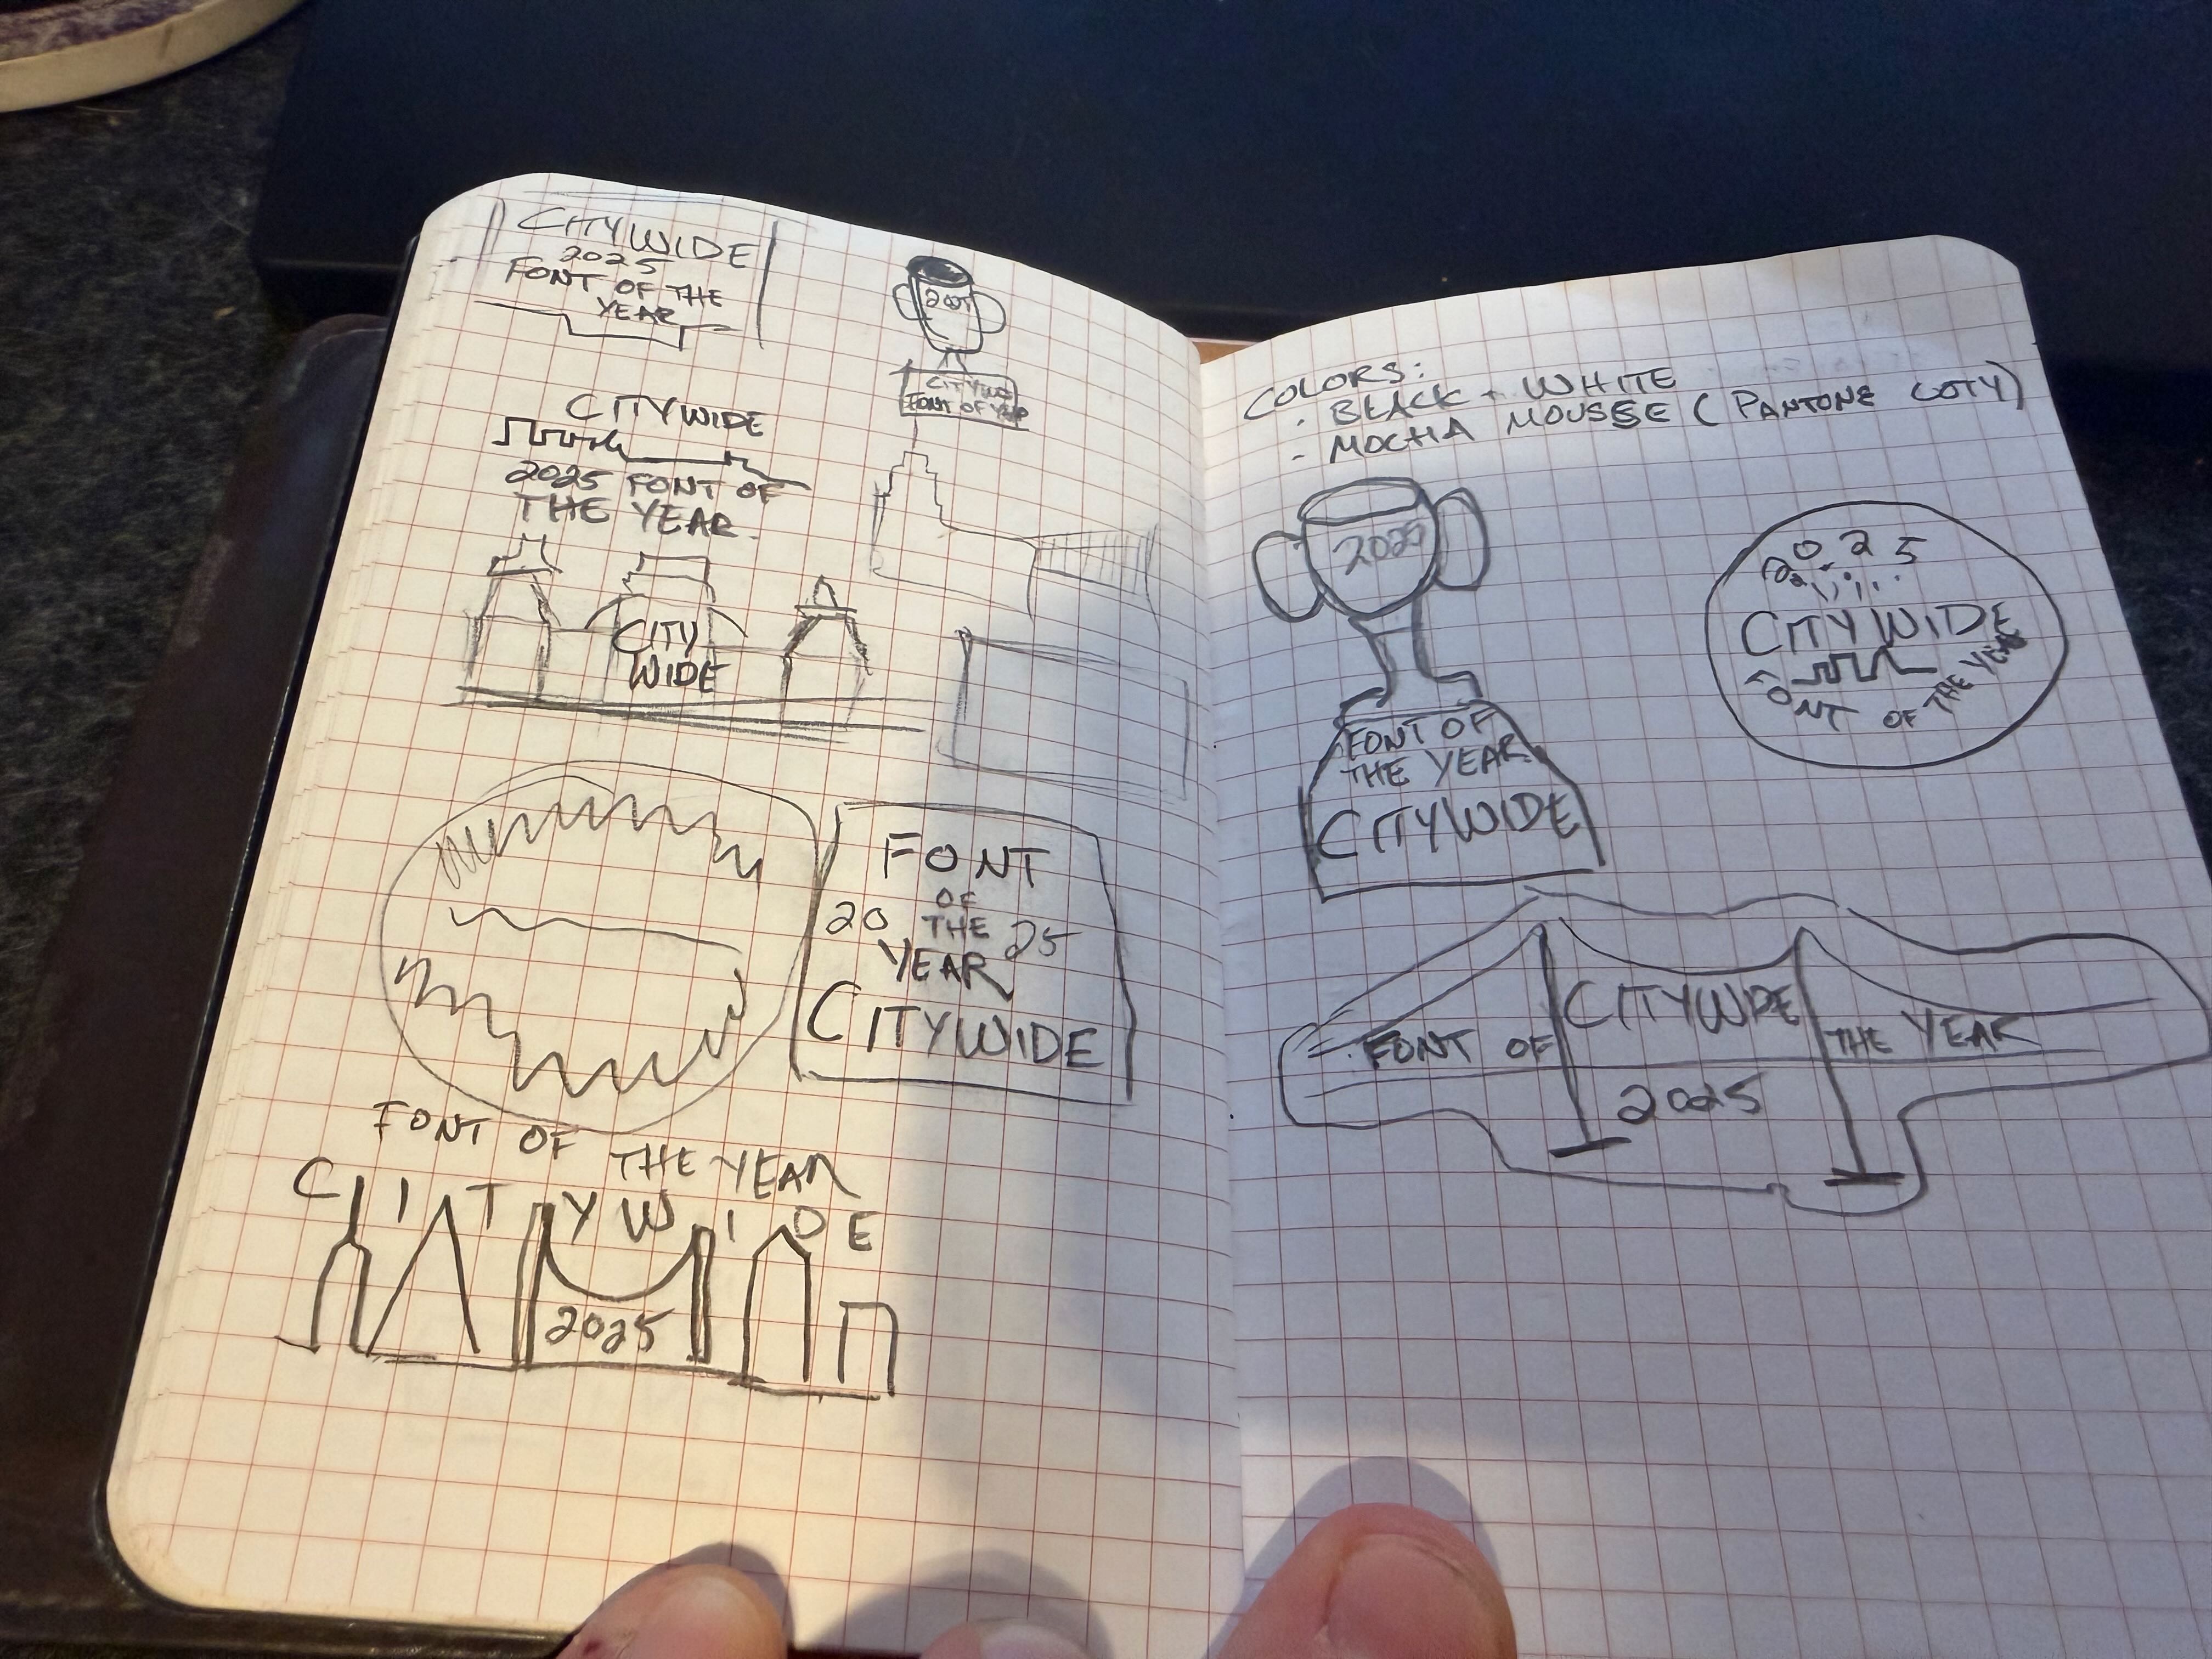 CITYWIDE
2025
FONT OF THE
YEAR
CITYWIDE
2025 FONT OF
THE YEAR.
CITY
WIDE
FONT OF YEAR
FONT
OF
20 THE 25
YEAR
CITYWIDE
FONT OF THE YEAR
CITYWIDE
2025
COLORS:
- BLACK + WHITE
- MOCHA MOUSSE (PANTONE COTY)
2025
FONT OF
THE YEAR
CITYWIDE
2025
CITYWIDE
FONT OF THE YEAR
CITYWIDE
FONT OF THE YEAR
2025